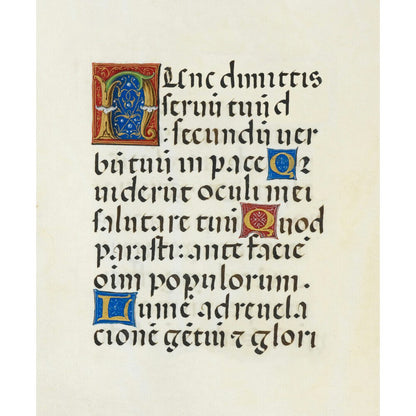 NUnc dimittis
seruū tuū d
: secundū uer
bū tuū in pace Qr
uiderūt oculi mei
salutare tuū Quod
parasti: ante facie
oim populorum.
Lumē ad reuela
cionē gētiū ⁊ glori